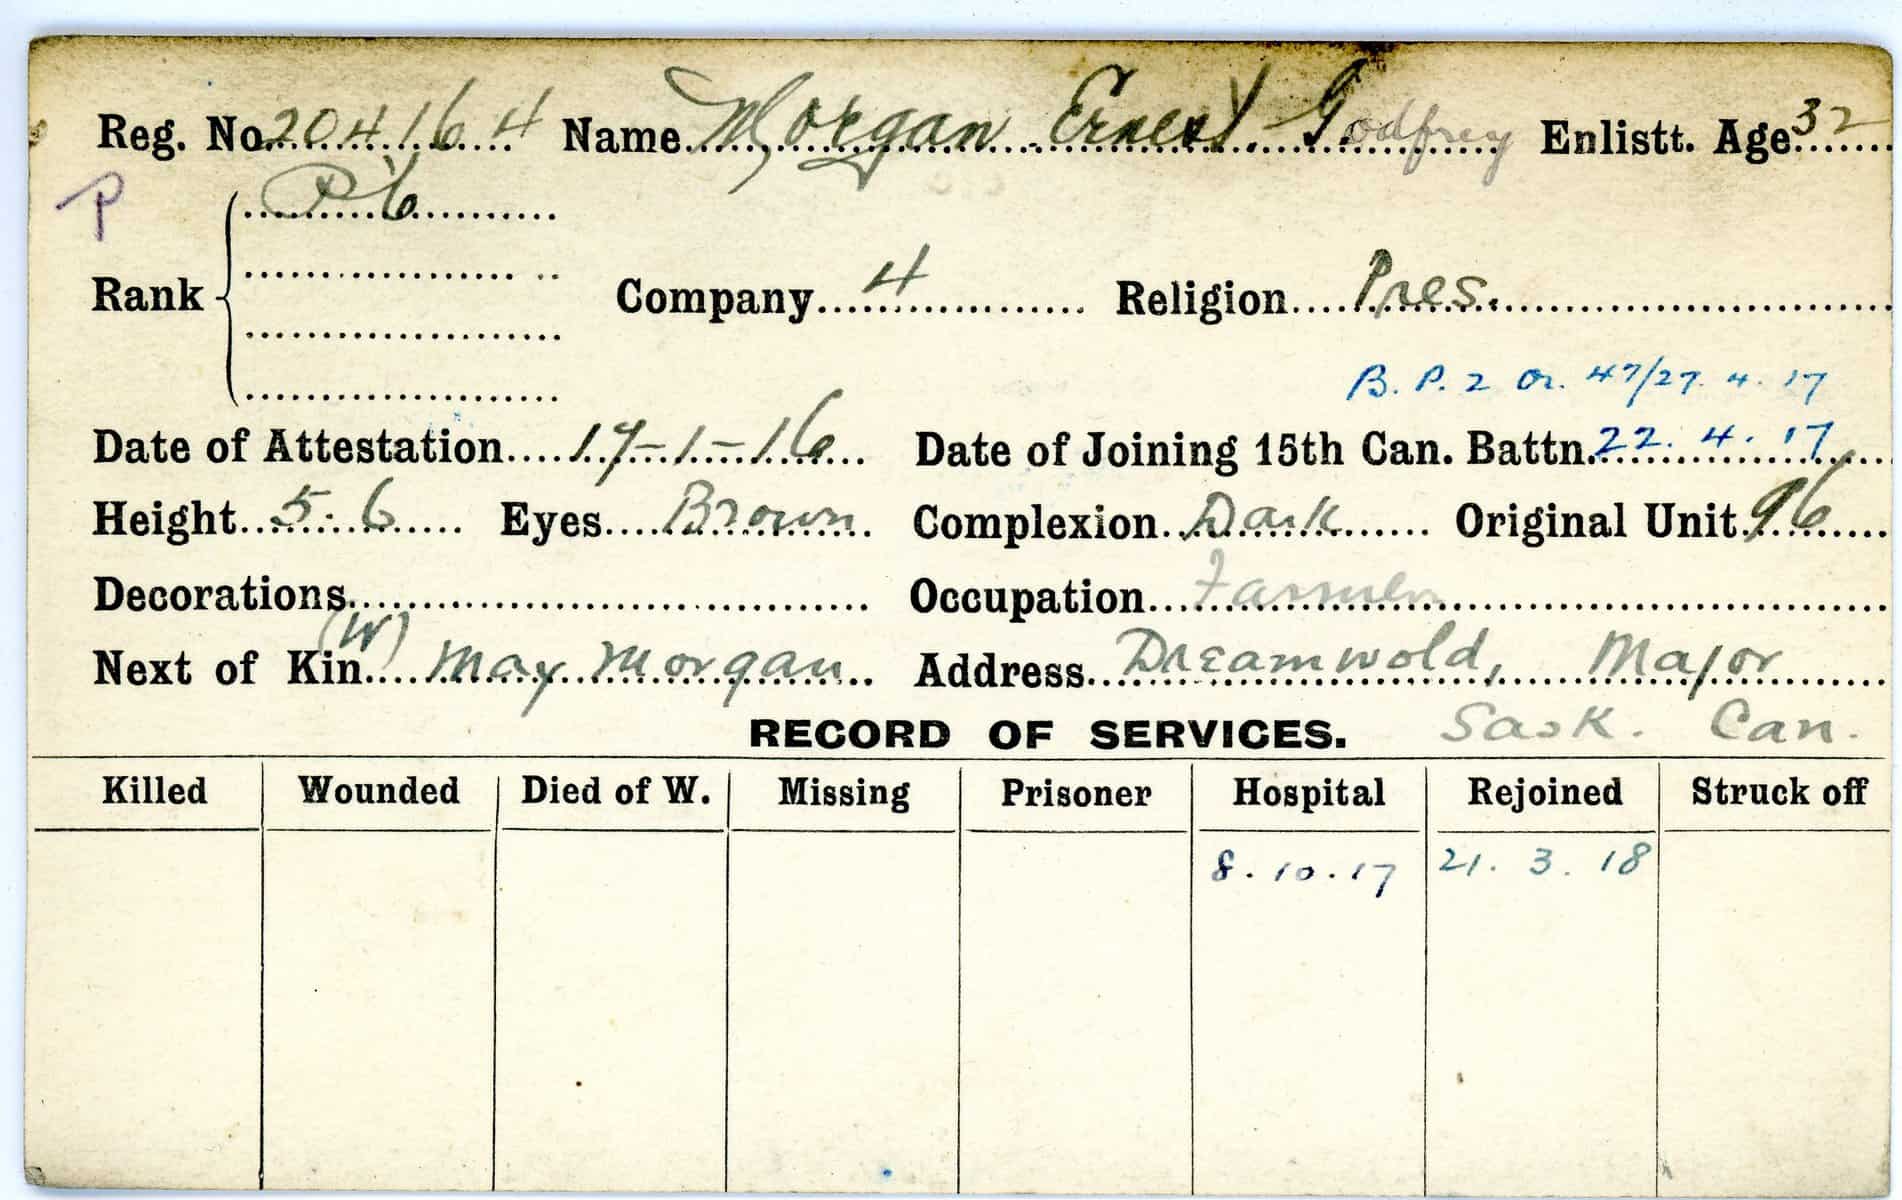 Reg. No. 204164 Name Morgan Ernest Godfrey Enlistt. Age 32
P
Rank Pte
Company 4 Religion Pres.
B. P. 2 Or. 47/27. 4. 17
Date of Attestation 17-1-16 Date of Joining 15th Can. Battn. 22. 4. 17
Height 5-6 Eyes Brown Complexion Dark Original Unit 96
Decorations Occupation Farmer
Next of Kin (W) May Morgan Address Dreamwold, Major
RECORD OF SERVICES. Sask. Can.
Killed Wounded Died of W. Missing Prisoner Hospital Rejoined Struck off
8. 10. 17 21. 3. 18